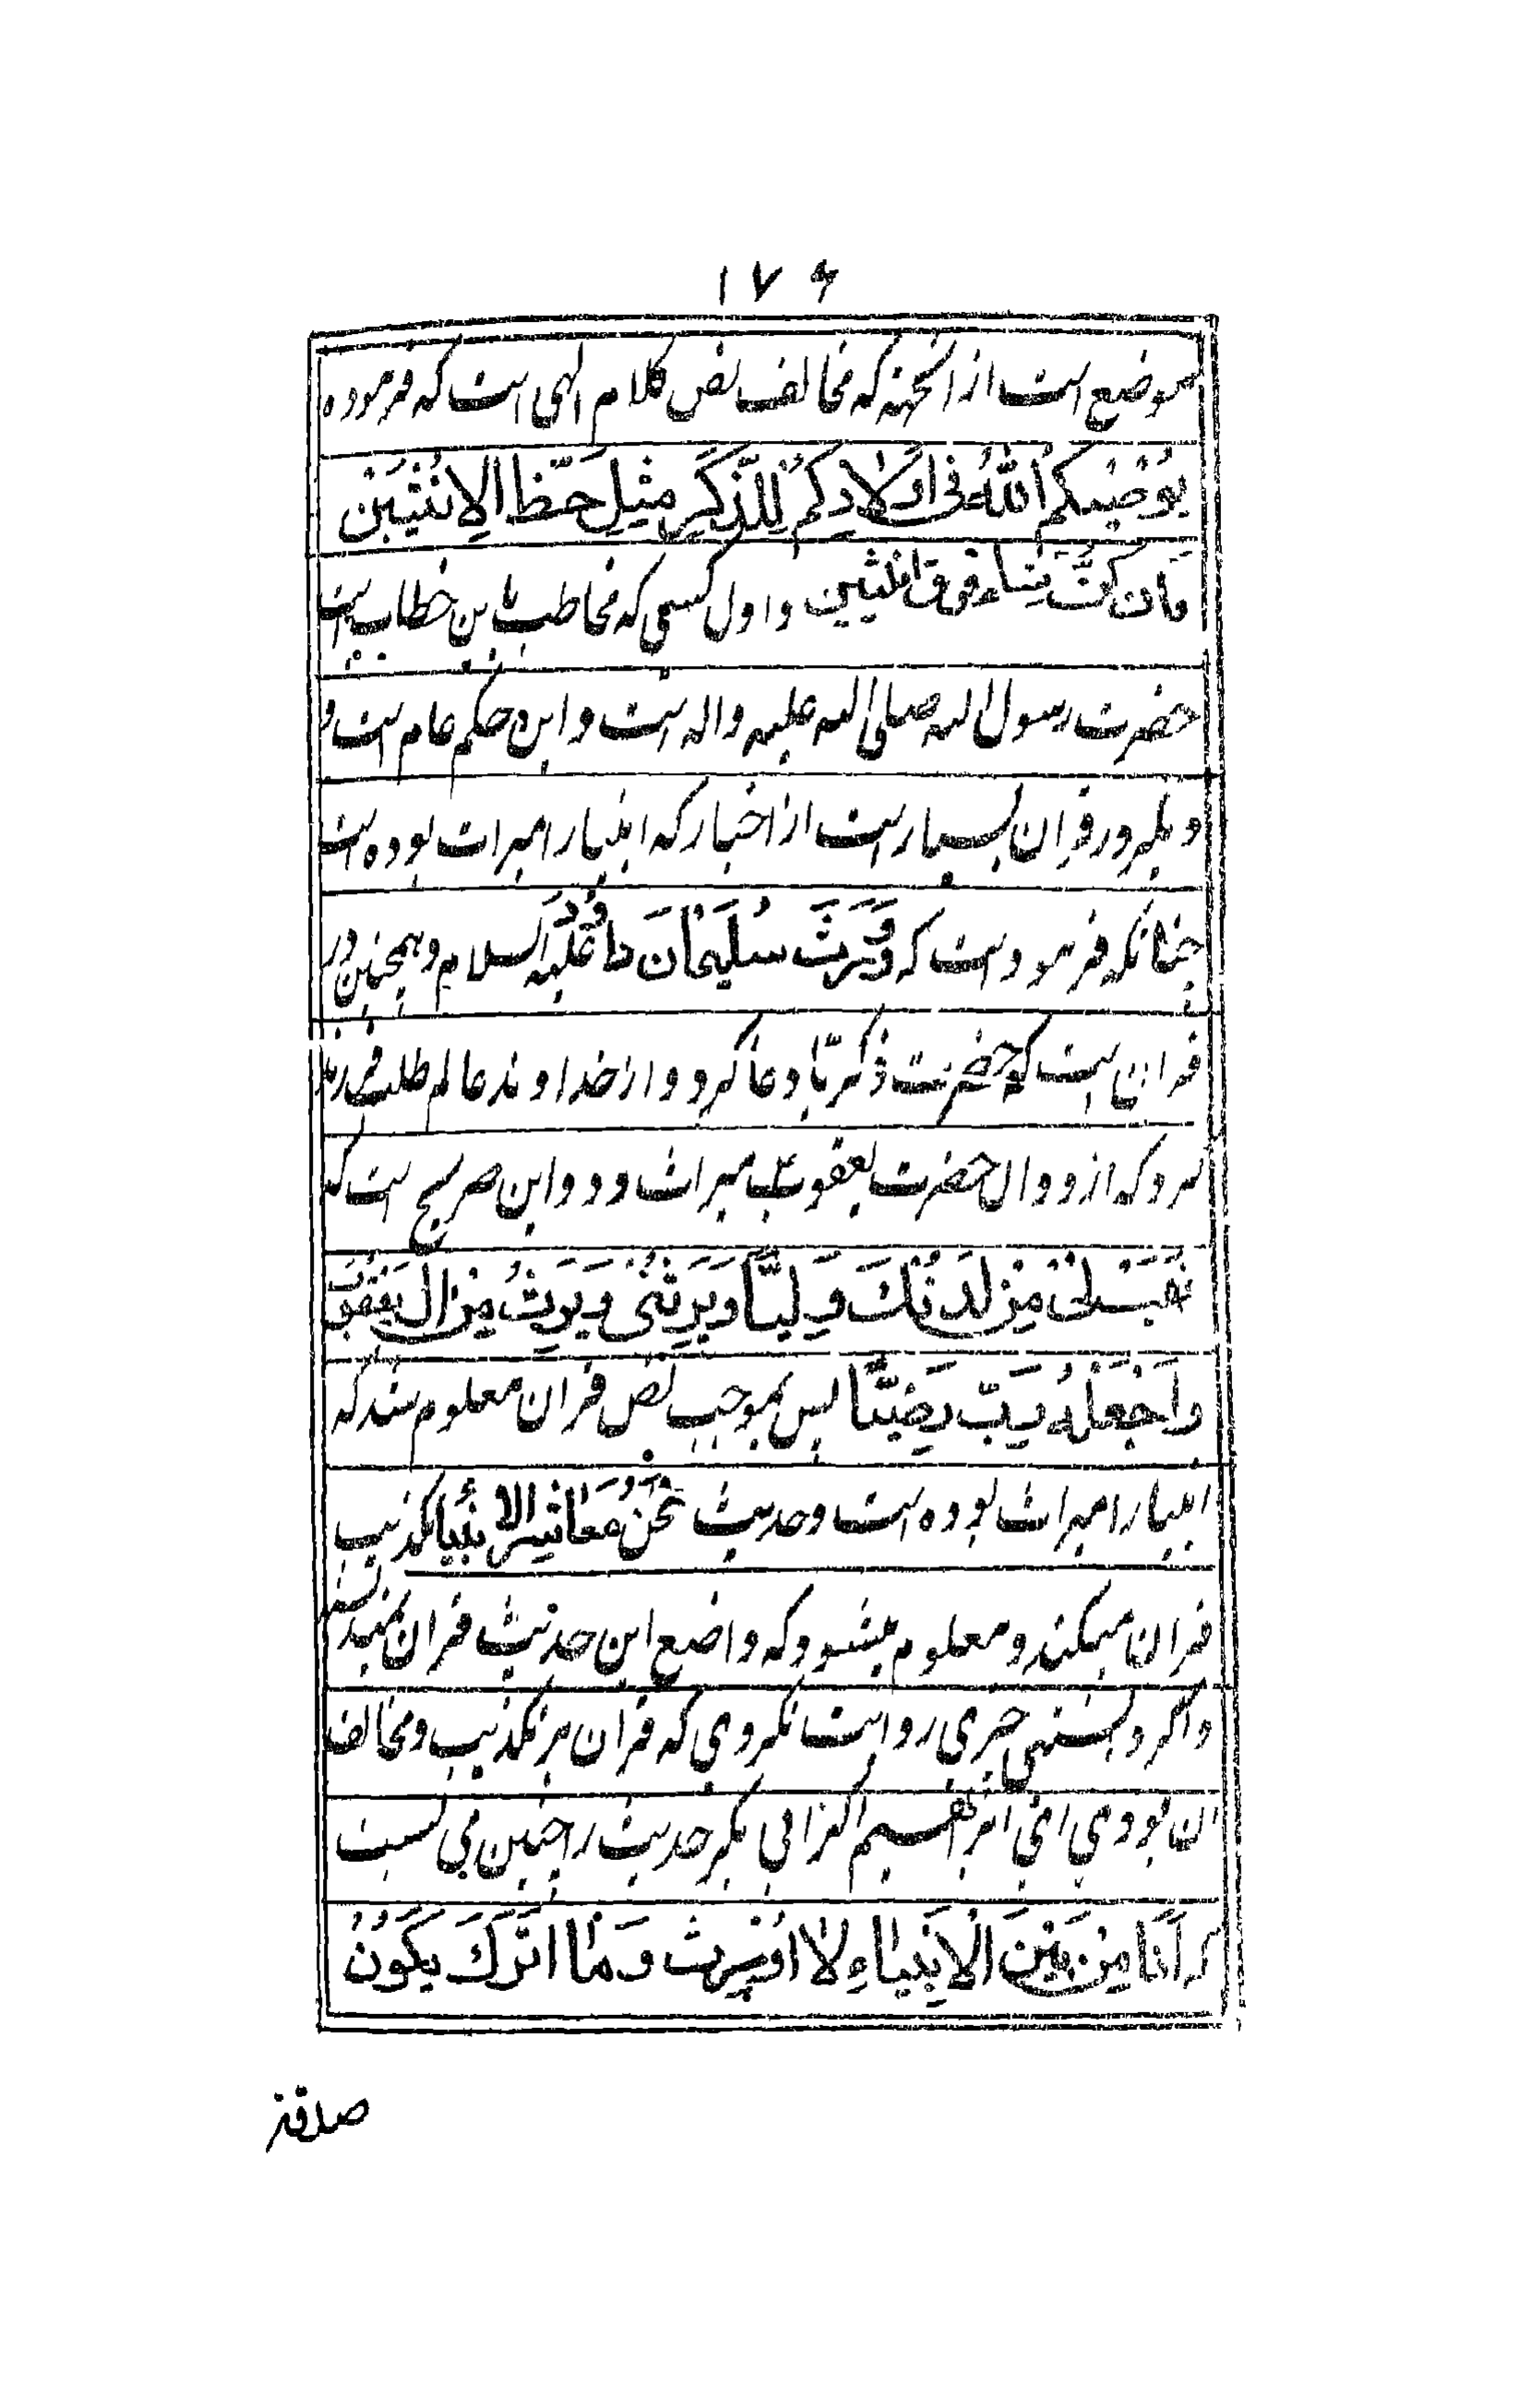 ۱۷۶
موضع است از انجهته که مخالف نص کلام الهی است که فرموده
یُوصِیکُمُ اللّٰهُ فِی اَوْلادِکُمْ لِلذَّکَرِ مِثْلِ حَظِّ الاِنْثَیَیْن
فان کنَّ نِساء فوق اثنثین و اول کسی که مخاطب باین خطاب است
حضرت رسول الله صلی الله علیه و اله است و این حکم عام است و
دیگر در قران بسیار است از اخبار که انبیا را میراث بوده است
چنانکه فرموده است که وَوَرِثَ سُلَیْمٰانَ داوُدَ علیه السلام و همچنین در
قران است که حضرت ذکریّا دعا کرد و از خداوند عالم طلب فرزند
کرد که از و و ال حضرت یعقوب میراث برد و این صریح است که
فَهَبْ لِیْ مِنْ لَدُنْکَ وَلِیّاً وَیَرِثُنی وَیَرِثُ مِنْ الِ یَعْقُوبَ
وَاجْعَلْهُ رَبِّ رَضِیّاً پس بموجب نص قران معلوم شد که
انبیا را میراث بوده است و حدیث نَحْنُ مَعٰاشِرَ الاَنْبیٰا تکذیب
قران میکند و معلوم میشود که واضع این حدیث قران نمیدانسته
و اکر دانستی خبری روایت نکردی که قران بر تکذیب و مخالف
ان بودی اکر ابی بکر حدیث را چنین می بست
که اَنَا مِنْ بَیْنَ الْاَنْبِیٰاءِ لاٰ اُوْرِثُ وَ مٰا اَتْرَکَ یَکُوْنُ
صدقة